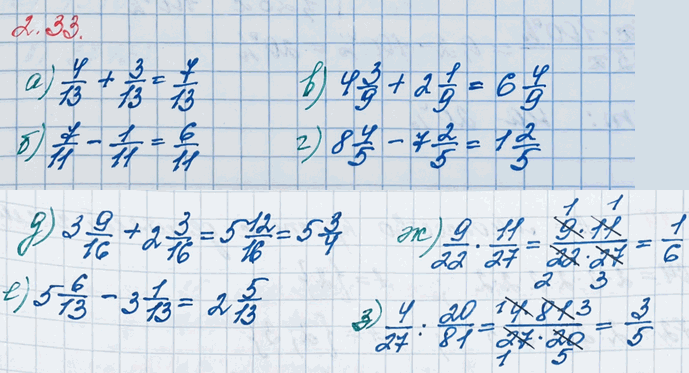 2.33.
а) 4/13 + 3/13 = 7/13
в) 4 3/9 + 2 1/9 = 6 4/9
б) 7/11 - 1/11 = 6/11
г) 8 4/5 - 7 2/5 = 1 2/5
д) 3 9/16 + 2 3/16 = 5 12/16 = 5 3/4
ж) 9/22 · 11/27 = 9·11/22·27 = 1/6
1 1
2 3
е) 5 6/13 - 3 1/13 = 2 5/13
з) 4/27 : 20/81 = 4·81/27·20 = 3/5
1 3
1 5